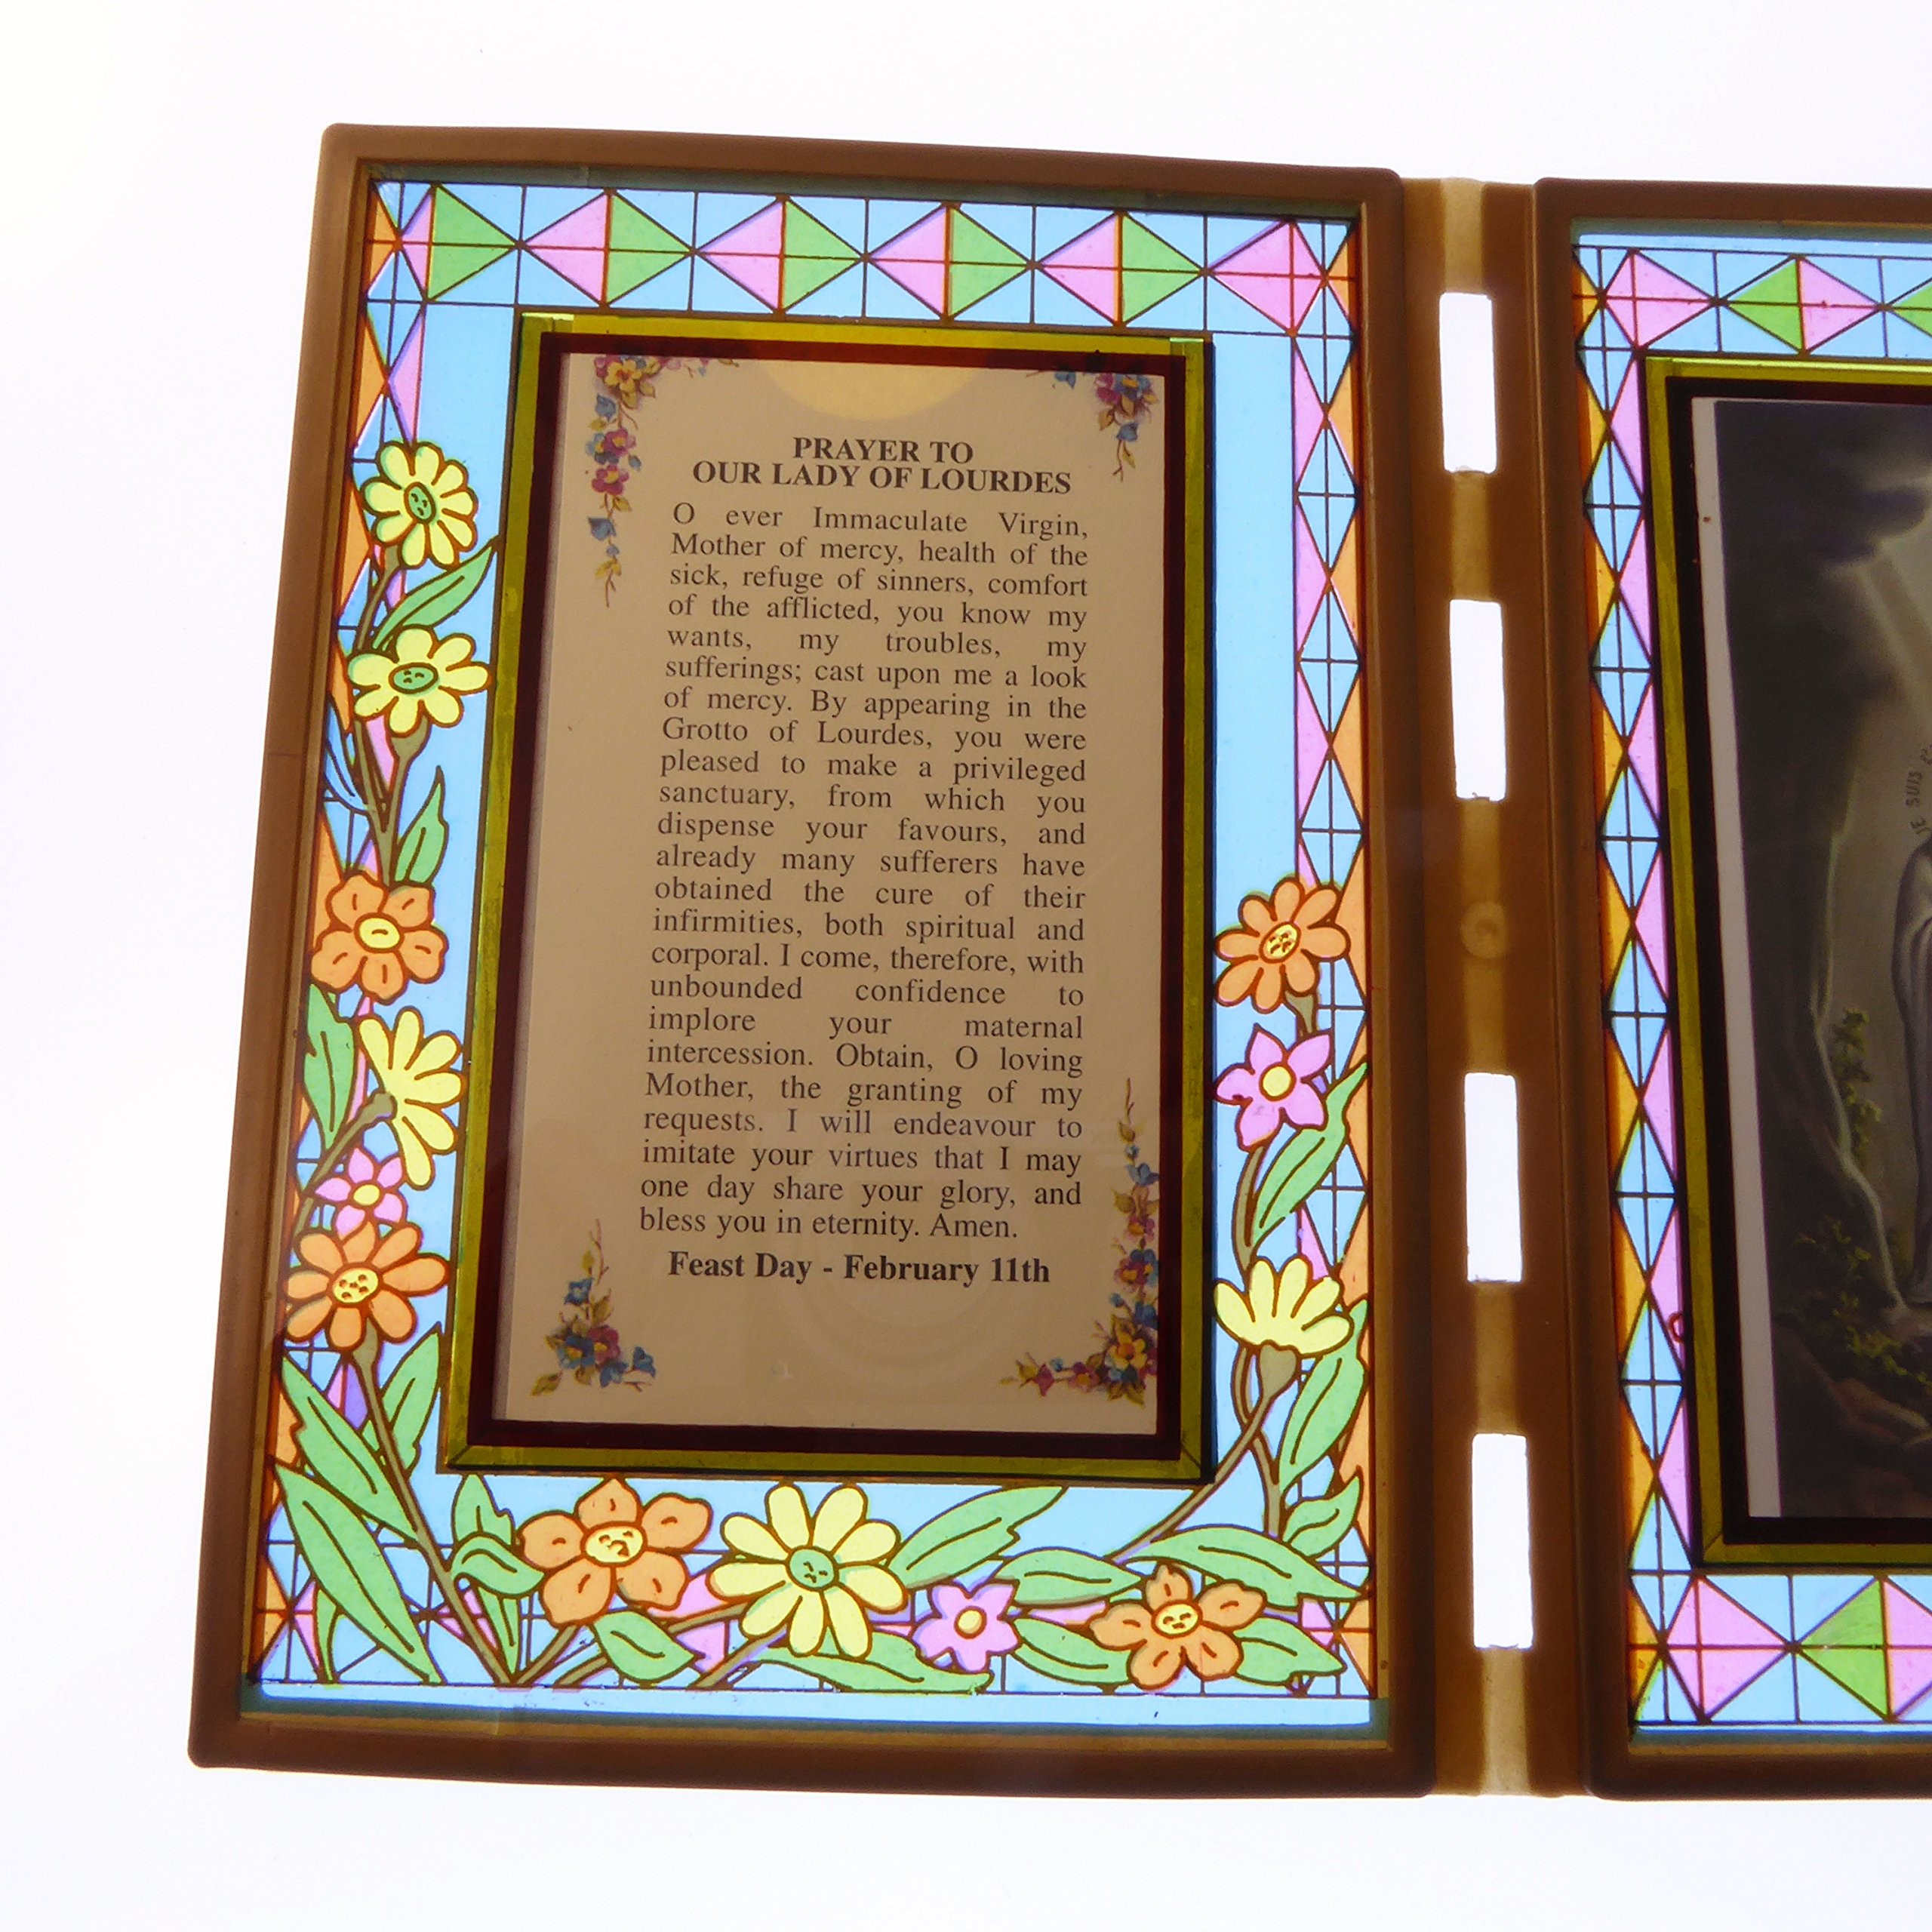 PRAYER TO
OUR LADY OF LOURDES
O ever Immaculate Virgin,
Mother of mercy, health of the
sick, refuge of sinners, comfort
of the afflicted, you know my
wants, my troubles, my
sufferings; cast upon me a look
of mercy. By appearing in the
Grotto of Lourdes, you were
pleased to make a privileged
sanctuary, from which you
dispense your favours, and
already many sufferers have
obtained the cure of their
infirmities, both spiritual and
corporal. I come, therefore, with
unbounded confidence to
implore your maternal
intercession. Obtain, O loving
Mother, the granting of my
requests. I will endeavour to
imitate your virtues that I may
one day share your glory, and
bless you in eternity. Amen.
Feast Day - February 11th
JE SUIS